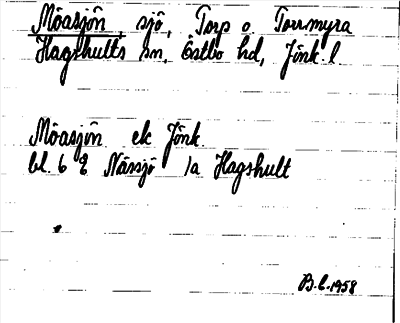 Möasjön, sjö, Torp o. Torrmyra
Hagshults sn, Östbo hd, Jönk. l.
Möasjön ek Jönk.
bl. 6 Nässjö 1a Hagshult
B.L. 1958